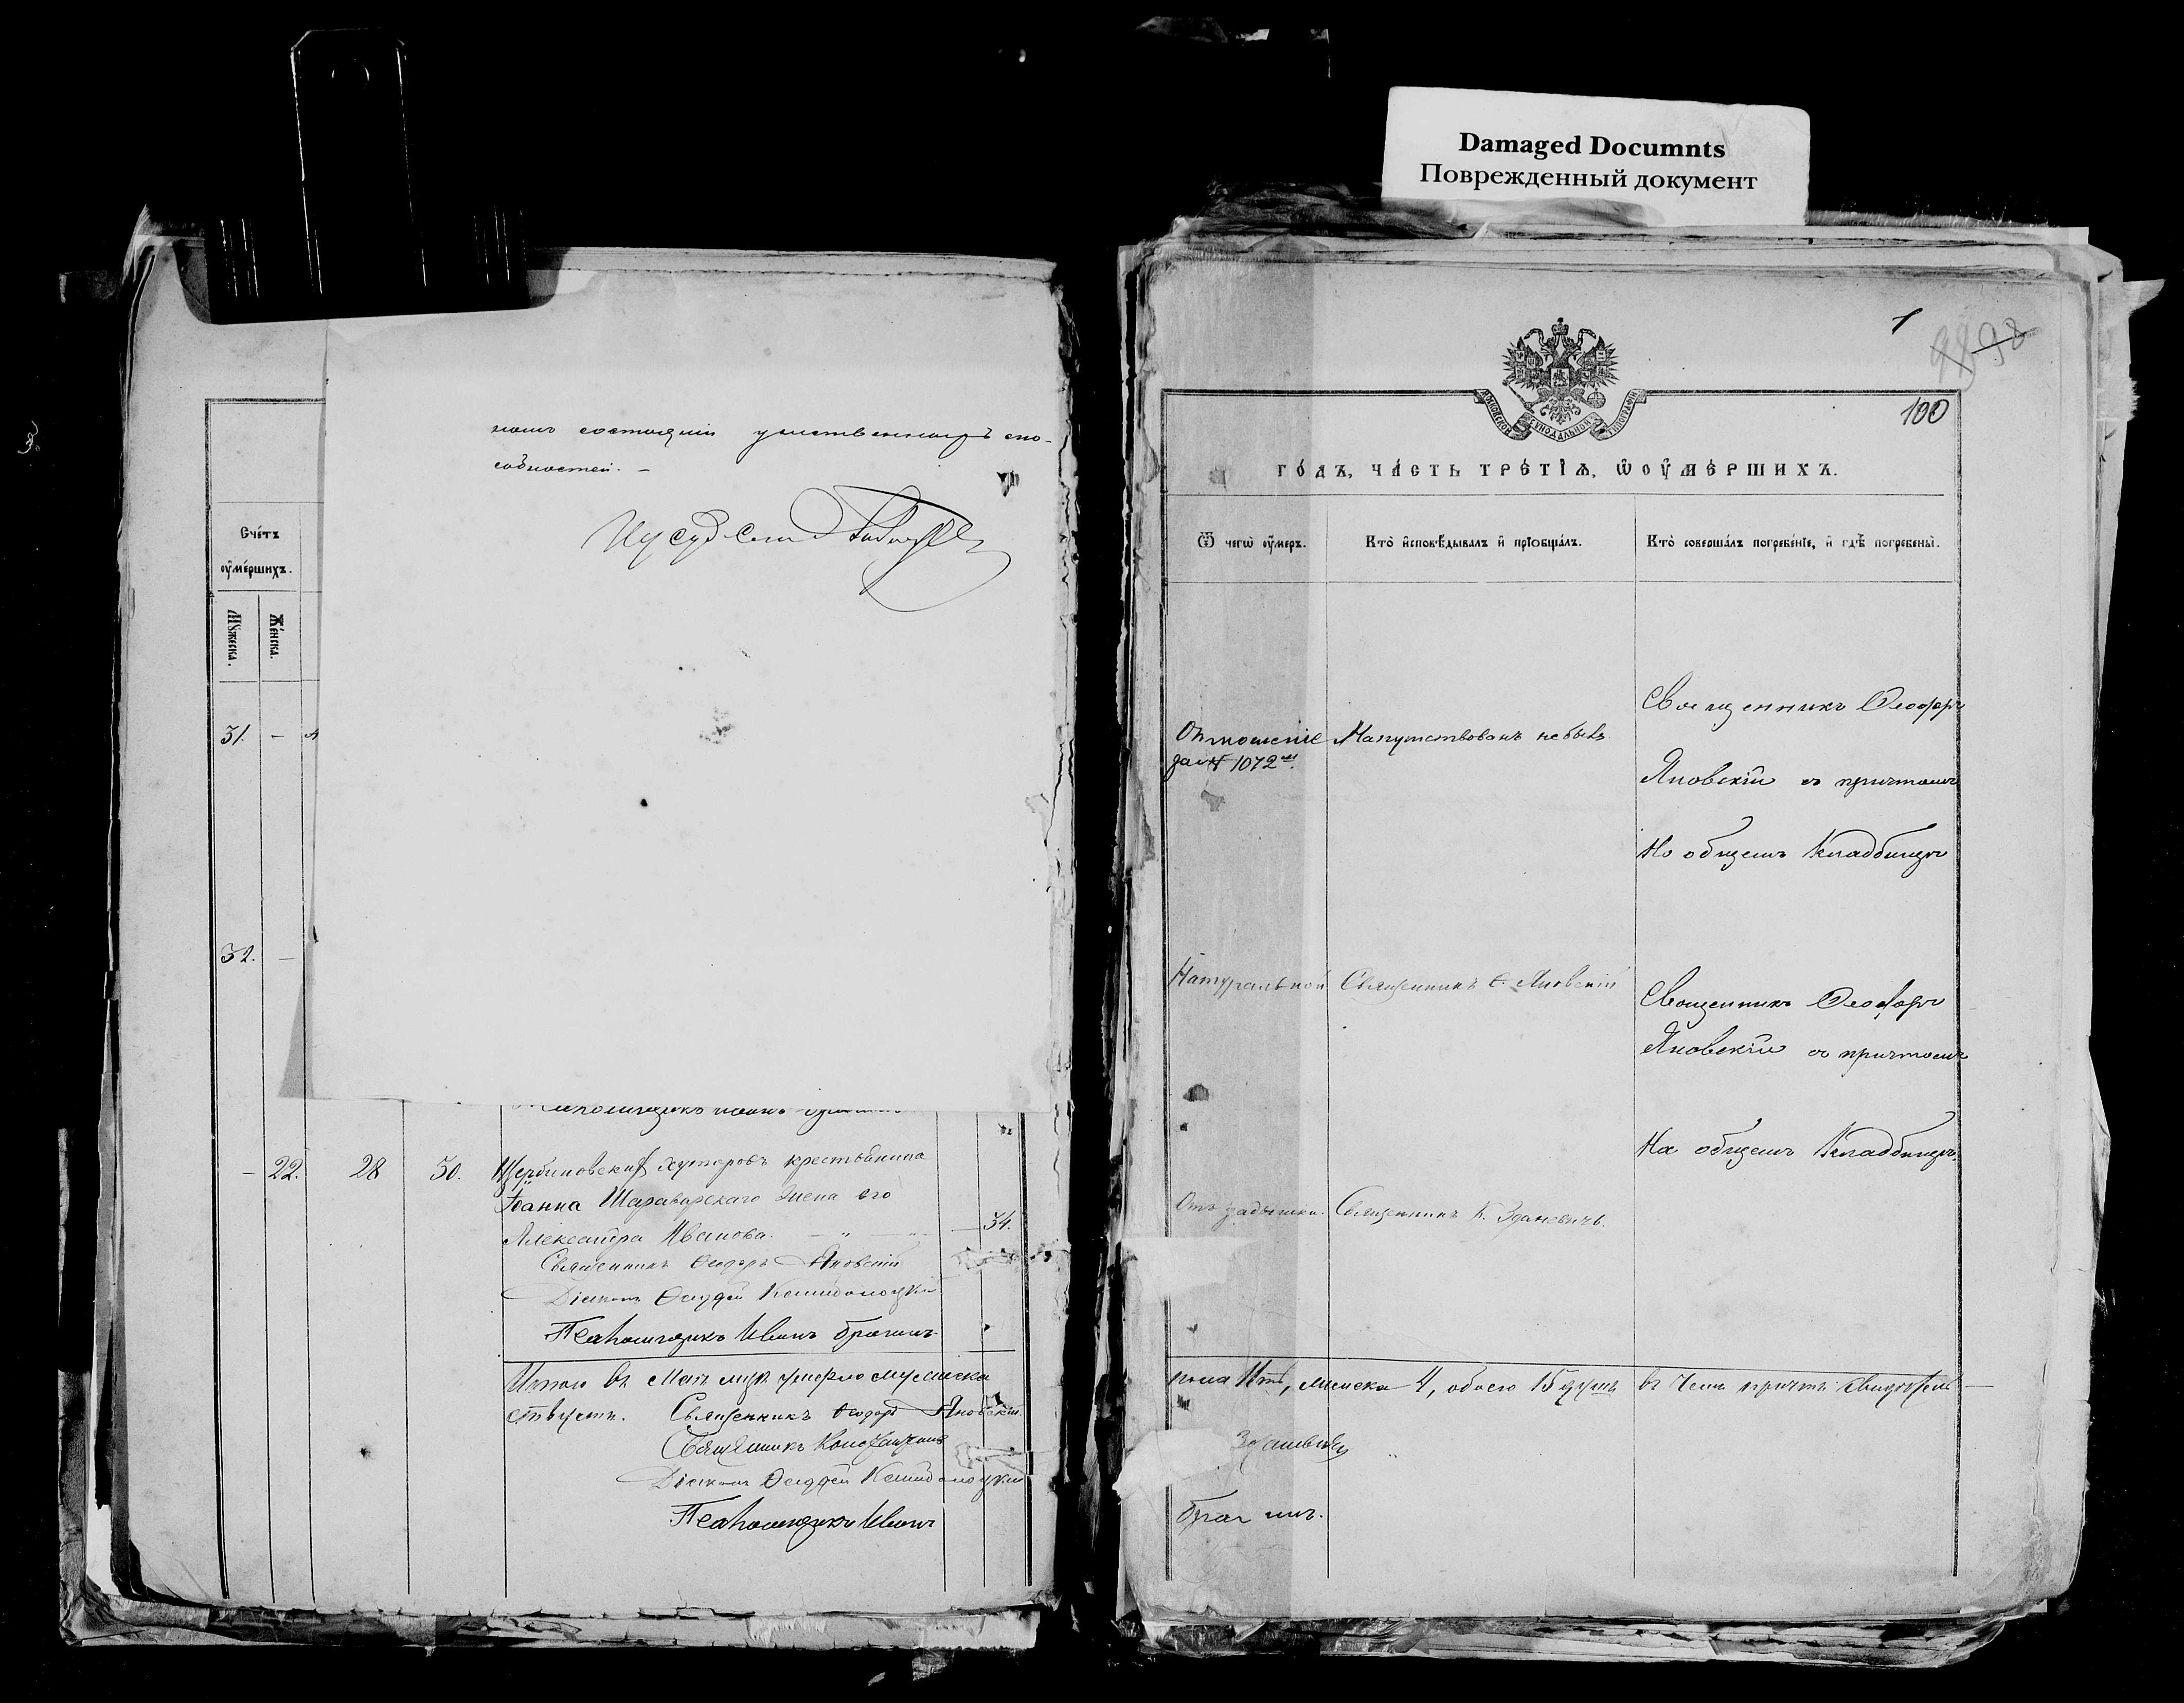 Damaged Documnts
Поврежденный документ
номъ состоянiи умственныхъ спо-
собностей. –
Счéтъ
оумéршихъ.
Мꙋжеска.
Жéнска.
31. –
32. –
– 22. 28 30. Щербиновскихъ хуторовъ крестьянина
Іоанна Шараварскаго жена его
Александра Иванова. – „ – 34.
Священникъ Ѳеодоръ Яновскій
Діаконъ
Псаломщикъ Иванъ Брагинъ
Итого въ Маѣ мцѣ умерло мужеска
ствуетъ. Священникъ Ѳеодоръ Яновскій
Священникъ Константинъ
Діаконъ
Псаломщикъ Иванъ
1
98
100
МОСКОВСКОЙ СУНОДАЛЬНОЙ ТУПОГРАФІИ
го́дъ, ча́сть тре́тїѧ, ѡ оу҆ме́ршихъ.
Ѿ чегѡ̀ оу҆́меръ.
Кто̀ и҆сповѣ́дывалъ и҆ прїѻбща́лъ.
Кто̀ соверша́лъ погребе́нїе, и҆ гдѣ̀ погребены̀.
Отношеніе
за № 1072мъ.
Напутствованъ не былъ.
Священникъ Ѳеодоръ
Яновскій съ причтомъ
На общемъ кладбищѣ
Натуральной
Священникъ Ѳ. Яновскій
Священникъ Ѳеодоръ
Яновскій съ причтомъ
На общемъ кладбищѣ.
Отъ задышки.
Священникъ К. Зданевичъ.
пола 11ть, женска 4, обоего 15 душъ въ чемъ причтъ свидѣтель–
Зданевичъ
Брагинъ.